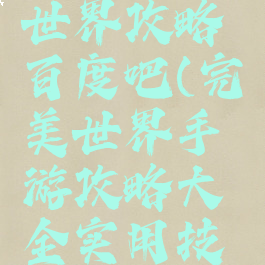 世界攻略
百度吧(完
美世界手
游攻略大
全实用技